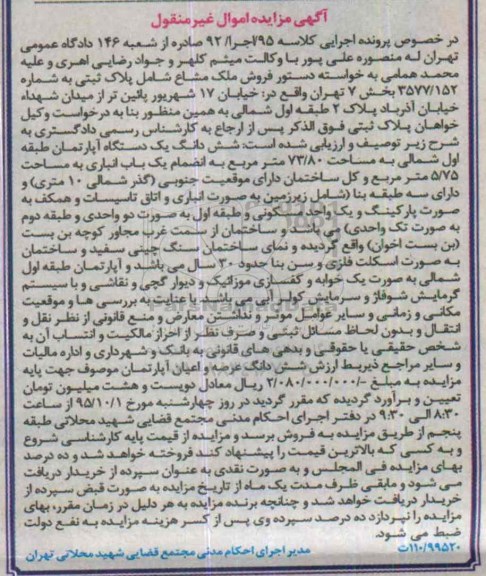 آگهی مزایده اموال غیر منقول
در خصوص پرونده اجرایی کلاسه ۹۵/اجرا/ ۹۲ صادره از شعبه ۱۴۶ دادگاه عمومی
تهران له منصوره علی پور با وکالت میثم کلهر و جواد رضایی اهری و علیه
محمد همامی به خواسته دستور فروش ملک مشاع شامل پلاک ثبتی به شماره
۳۵۷۷/۱۵۲ بخش ۷ تهران واقع در: خیابان ۱۷ شهریور پائین تر از میدان شهداء
خیابان آذرباد پلاک ۲ طبقه اول شمالی به همین منظور بنا به درخواست وکیل
خواهان پلاک ثبتی فوق الذکر پس از ارجاع به کارشناس رسمی دادگستری به
شرح زیر توصیف و ارزیابی شده است: شش دانگ یک دستگاه آپارتمان طبقه
اول شمالی به مساحت ۷۳/۸۰ متر مربع به انضمام یک باب انباری به مساحت
۵/۷۵ متر مربع و کل ساختمان دارای موقعیت جنوبی (گذر شمالی ۱۰ متری) و
دارای سه طبقه بنا (شامل زیرزمین به صورت انباری و اتاق تاسیسات و همکف به
صورت پارکینگ و یک واحد مسکونی و طبقه اول به صورت دو واحدی و طبقه دوم
به صورت تک واحدی) می باشد و ساختمان از سمت غرب مجاور کوچه بن بست
(بن بست اخوان) واقع گردیده و نمای ساختمان سنگ چینی سفید و ساختمان
به صورت اسکلت فلزی و سن بنا حدود ۳۰ سال می باشد و آپارتمان طبقه اول
شمالی به صورت یک خوابه و کفسازی موزائیک و دیوار گچی و نقاشی و با سیستم
گرمایش شوفاژ و سرمایش کولر آبی می باشد با عنایت به بررسی ها و موقعیت
مکانی و زمانی و سایر عوامل موثر و نداشتن معارض و منع قانونی از نظر نقل و
انتقال و بدون لحاظ مسائل ثبتی و صرف نظر از احراز مالکیت و انتساب آن به
شخص حقیقی یا حقوقی و بدهی های قانونی به بانک و شهرداری و اداره مالیات
و سایر مراجع ذیربط ارزش شش دانگ عرصه و اعیان آپارتمان موصوف جهت پایه
مزایده به مبلغ -/۲/۰۸۰/۰۰۰/۰۰۰ ریال معادل دویست و هشت میلیون تومان
تعیین و برآورد گردیده که مقرر گردید در روز چهارشنبه مورخ ۹۵/۱۰/۱ از ساعت
۸:۳۰ الی ۹:۳۰ در دفتر اجرای احکام مدنی مجتمع قضایی شهید محلاتی طبقه
پنجم از طریق مزایده به فروش برسد و مزایده از قیمت پایه کارشناسی شروع
و به کسی که بالاترین قیمت را پیشنهاد کند فروخته خواهد شد و ده درصد
بهای مزایده فی المجلس و به صورت نقدی به عنوان سپرده از خریدار دریافت
می شود و مابقی ظرف مدت یک ماه از تاریخ مزایده به صورت قبض سپرده از
خریدار دریافت خواهد شد و چنانچه برنده مزایده به هر دلیل در زمان مقرر، بهای
مزایده را نپردازد ده درصد سپرده وی پس از کسر هزینه مزایده به نفع دولت
ضبط می شود.
۱۱۰/۹۹۵۲۰ت مدیر اجرای احکام مدنی مجتمع قضایی شهید محلاتی تهران